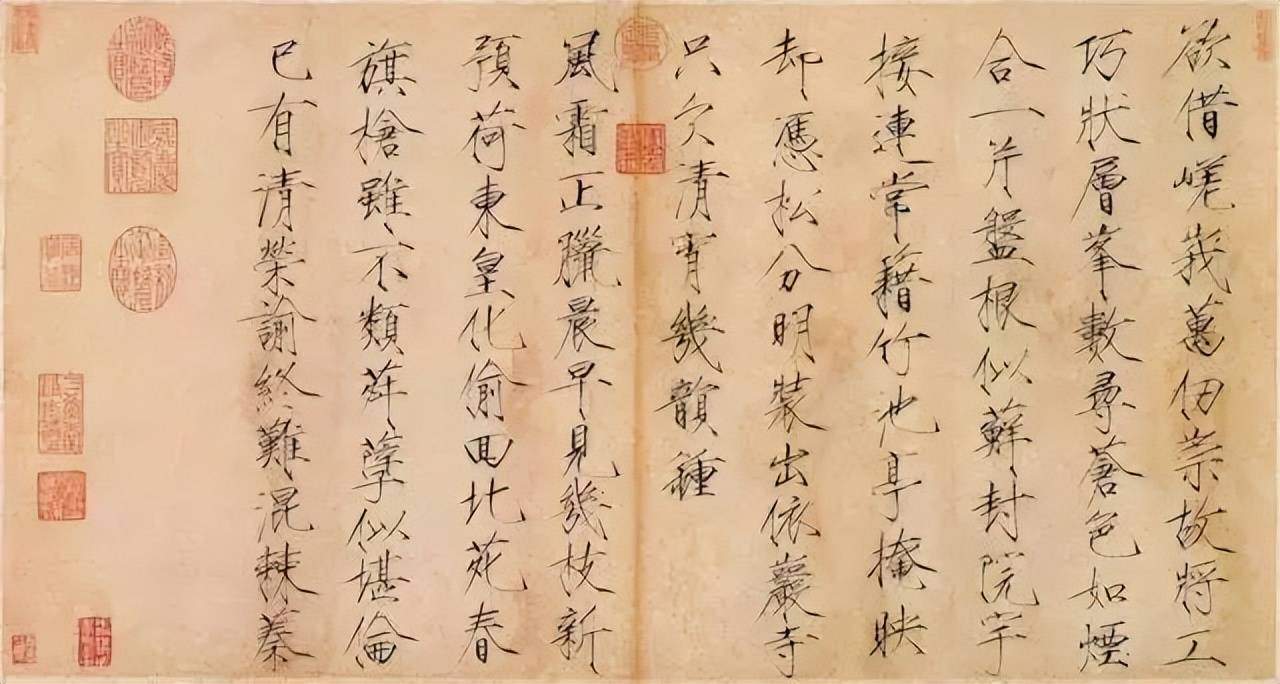 欲借嵯峩萬仞崇故將工
巧狀層峯數尋蒼色如煙
合一片盤根似蘚封院宇
接連常藉竹池亭掩映
却憑松分明裝出依巖寺
只欠清宵幾韻鍾
風霜正臘晨早見幾枝新
預荷東皇化偷囬北苑春
旗槍雖不類荈孽似堪倫
已有清榮諭終難混棘蓁